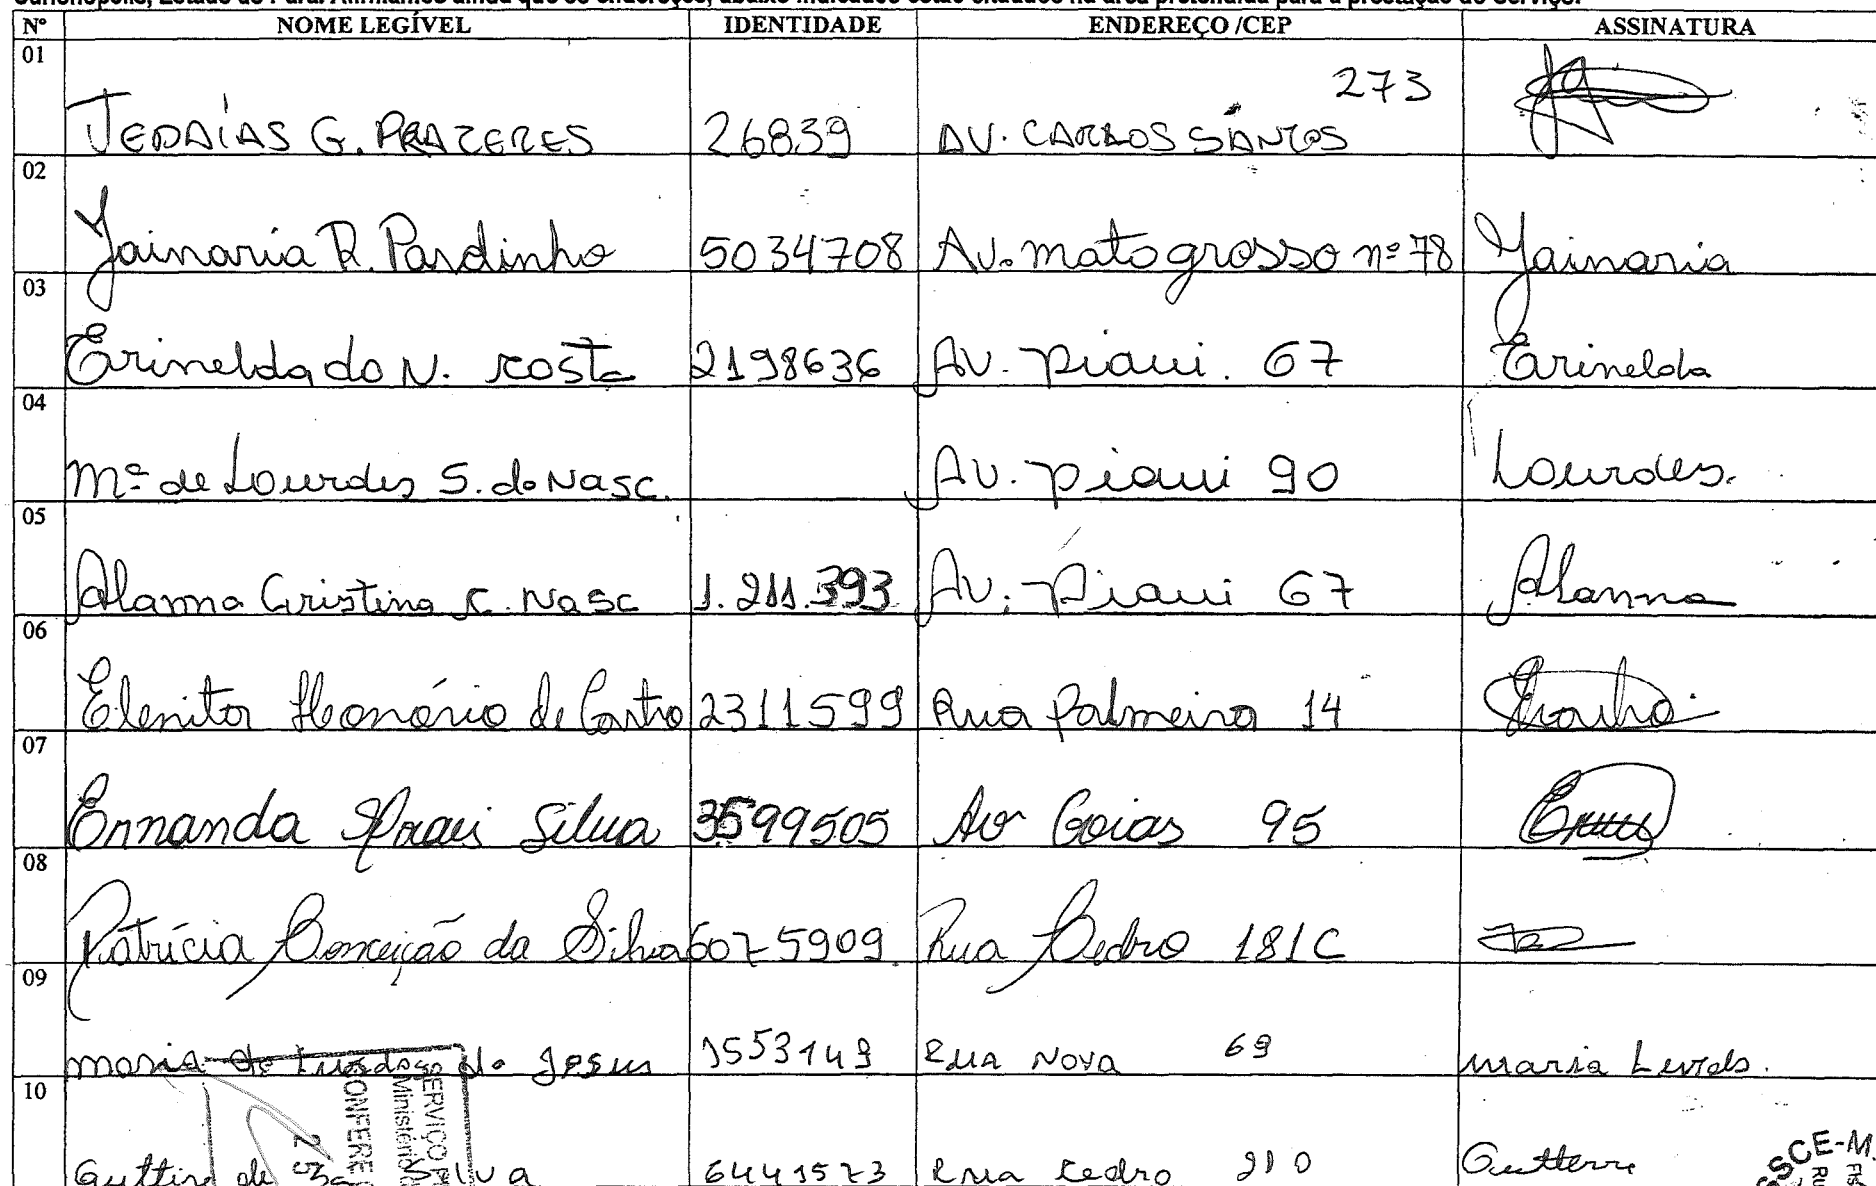 Nº NOME LEGÍVEL IDENTIDADE ENDEREÇO /CEP ASSINATURA
01 JEDAÍAS G. PRAZERES 26839 AV. CARLOS SANTOS 273
02 Jainaria R. Pardinho 5034708 Av. mato grosso nº 78 Jainaria
03 Erinelda do N. costa 2198636 AV. piaui. 67 Erinelda
04 Mª de Lourdes S. do Nasc. AV. piaui 90 Lourdes.
05 Alanna Cristina C. Nasc 1.211.393 AV. Piaui 67 Alanna
06 Elenita Honório de Castro 2311599 Rua Palmeira 14
07 Ernanda Silva 3599505 Av Goias 95
08 Patrícia Conceição da Silva 6025909 Rua Cedro 181C
09 maria de Jesus 1553149 Rua Nova 69 maria
10 de Silva 6441573 Rua cedro 210
SERVIÇO
Ministério
CONFERE
25
SCE-M